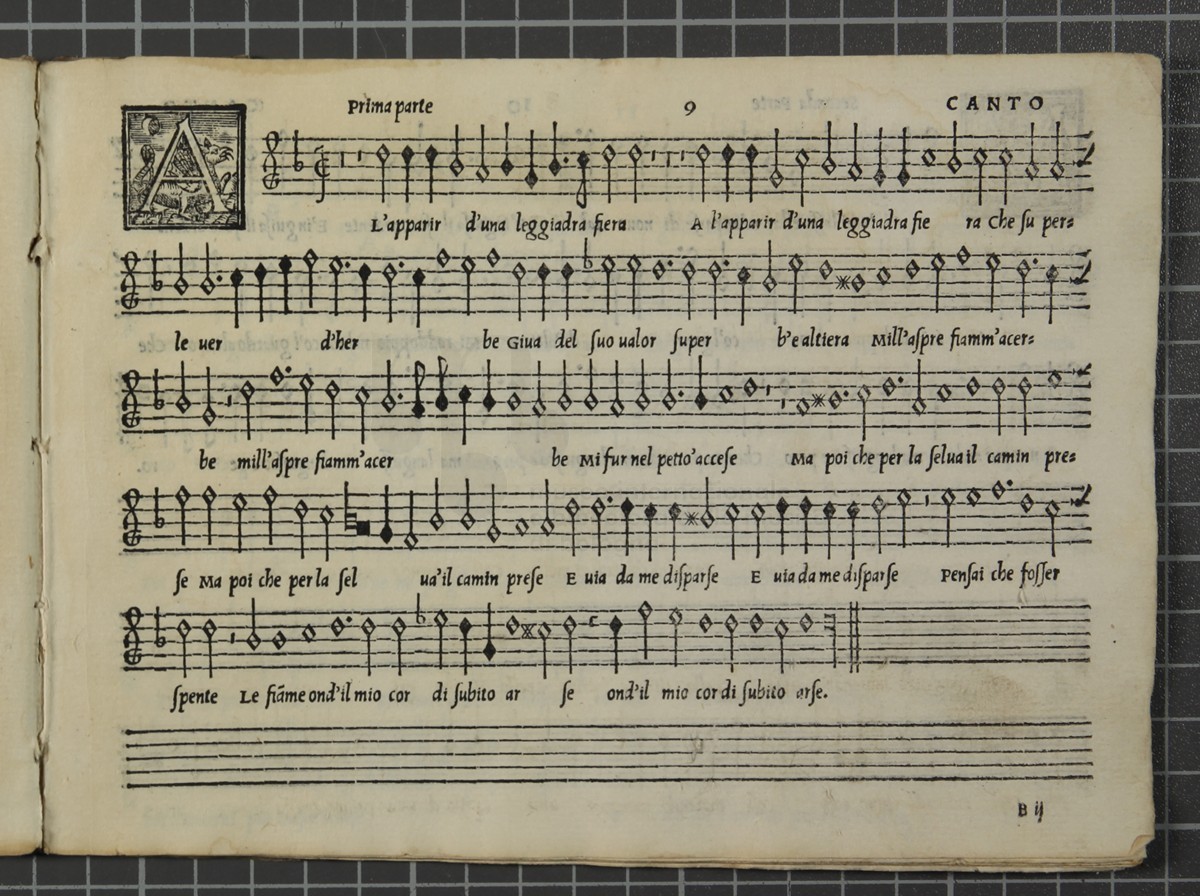 Prima parte 9 CANTO
A
L'apparir d'una leggiadra fiera A l'apparir d'una leggiadra fie ra Che ſu per=
le uer d'her be Giua del ſuo ualor ſuper b'e altiera Mill'aſpre fiamm'acer=
be mill'aſpre fiamm'acer be Mi fur nel petto'acceſe Ma poi che per la ſelua il camin pre=
ſe Ma poi che per la ſel ua'il camin preſe E uia da me diſparſe E uia da me diſparſe Penſai che foſſer
ſpente Le fiãme ond'il mio cor di ſubito ar ſe ond'il mio cor di ſubito arſe.
B ij